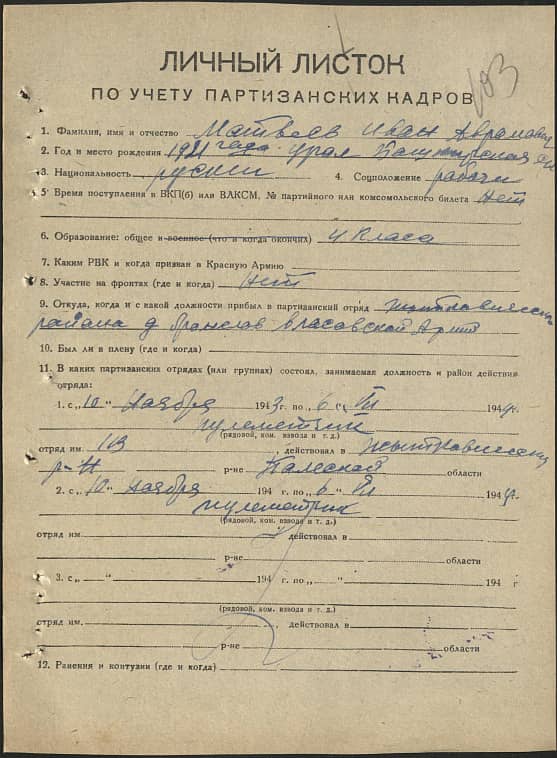 183
ЛИЧНЫЙ ЛИСТОК
ПО УЧЕТУ ПАРТИЗАНСКИХ КАДРОВ
1. Фамилия, имя и отчество Матвеев Иван Аврамович
2. Год и место рождения 1921 года Урал Башкирская
3. Национальность руский 4. Соцположение рабочи
5. Время поступления в ВКП(б) или ВЛКСМ, № партийного или комсомольского билета нет
6. Образование: общее и военное (что и когда окончил) 4 класа
7. Каким РВК и когда призван в Красную Армию
8. Участие на фронтах (где и когда) нет
9. Откуда, когда и с какой должности прибыл в партизанский отряд
района д власовской Армии
10. Был ли в плену (где и когда)
11. В каких партизанских отрядах (или группах) состоял, занимаемая должность и район действия
отряда:
1. с „10 ноября 1943 г. по „6“ VII 1944 г.
пулеметчик
(рядовой, ком. взвода и т. д.)
отряд им. 123, действовал в
р-н р-не Полеской области
2. с „10 ноября 194 г. по „6 VII 1944 г.
пулеметчик
(рядовой, ком. взвода и т. д.)
отряд им. действовал в
р-не области
3. с „ “ 194 г. по „ “ 194 г
(рядовой, ком. взвода и т. д.)
отряд им. , действовал в
р-не области
12. Ранения и контузии (где и когда)